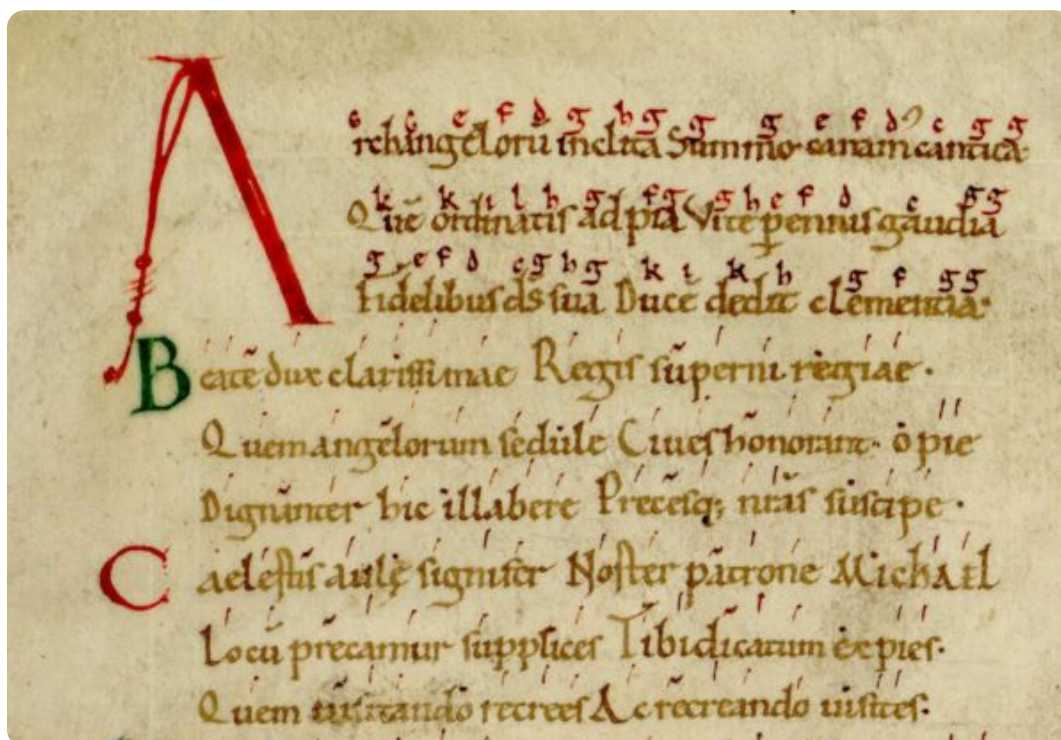 c c f d g h g g g e f d c g g
Archangelorū inclita Summo canam cantica·
k k i l h g f g g h e f d c g g
Quē ordinatis ad pia Vite ꝑennis gaudia
g e f d c g h g k i k h g f g g
Fidelibus d̄s sua Duce dedit clementia·
Beate dux clarissimae Regis superni regiae·
Quem angelorum sedule Ciues honorant· o pie
Dignanter hic illabere Precesq; nr̄as suscipe·
Caelestis aulę signifer Noster patrone Michael
Locū precamur supplices Tibi dicatum expies·
Quem uisitando recrees Ac recreando uisites·